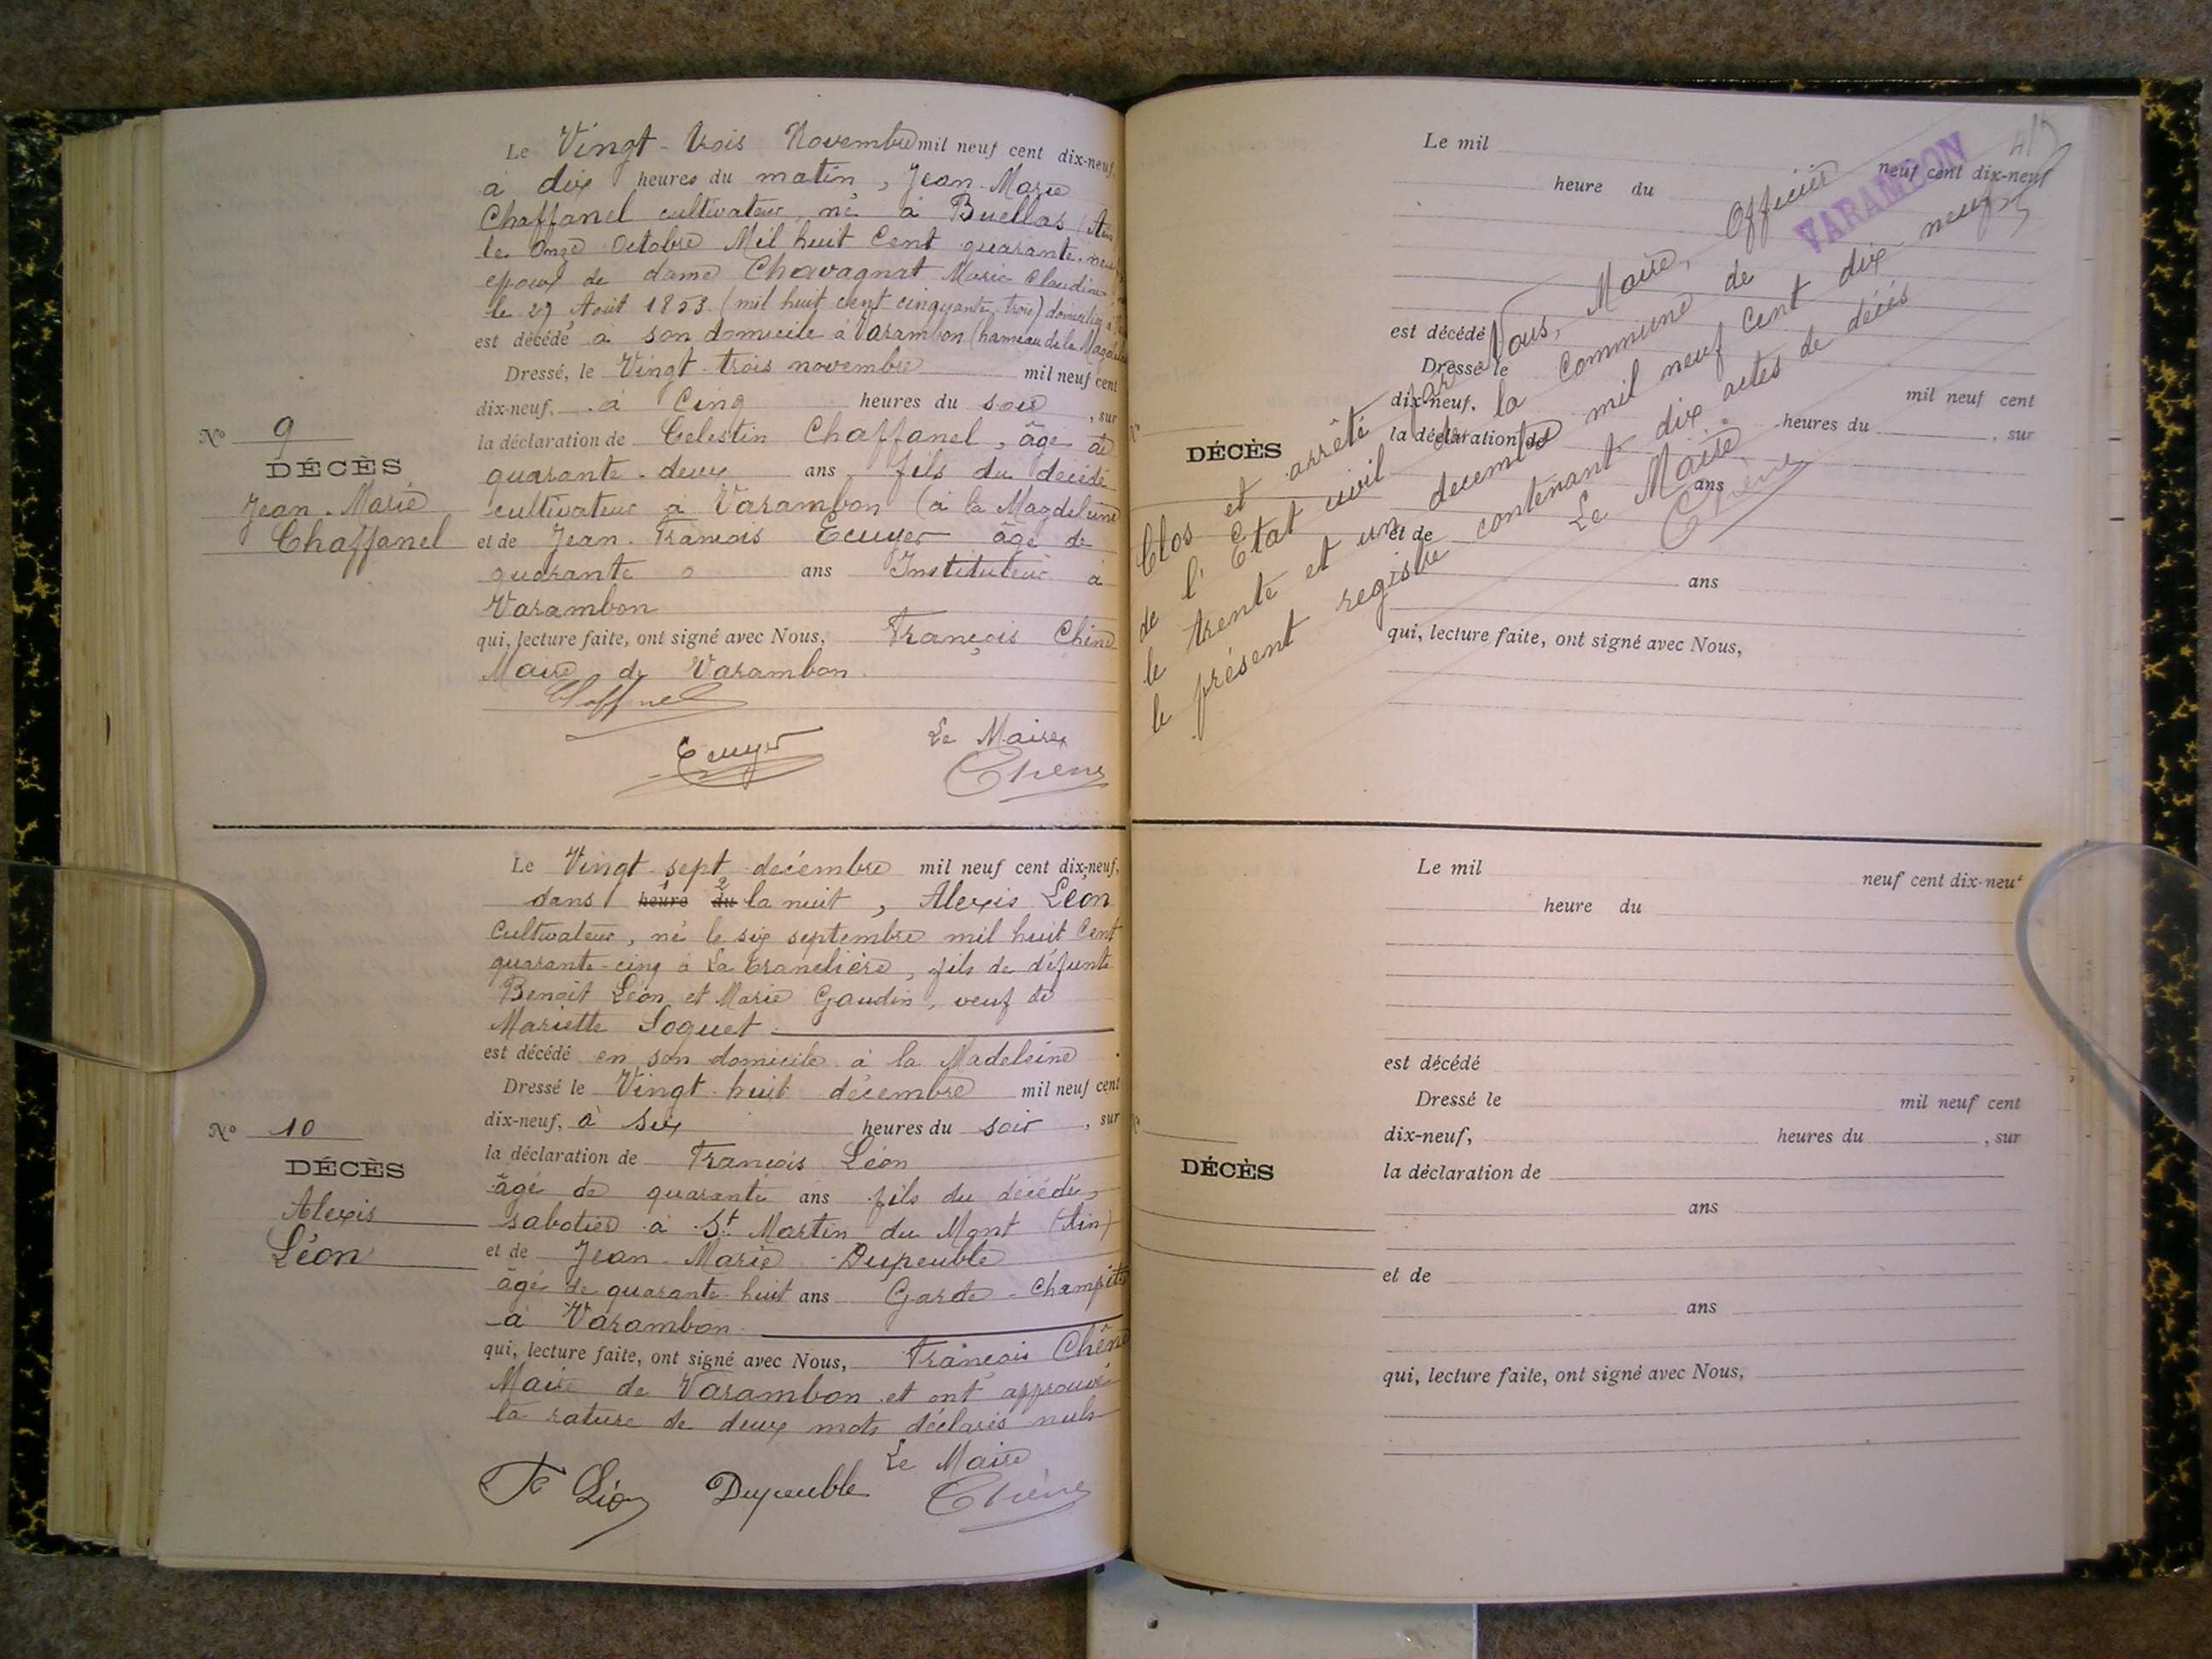 Le Vingt-trois Novembre mil neuf cent dix-neuf,
à dix heures du matin, Jean-Marie
Chaffanel cultivateur, né à Buellas (Ain
le Onze Octobre Mil huit Cent quarante-neuf
époux de dame Chavagnat Marie Claudine
le 27 Août 1853 (mil huit cent cinquante trois) domicilié à
est décédé à son domicile à Varambon (hameau de la
Dressé, le Vingt-trois novembre mil neuf cent
dix-neuf, à Cinq heures du soir, sur
la déclaration de Celestin Chaffanel, âgé de
quarante-deux ans fils du décédé
cultivateur à Varambon (à la Magdeleine
et de Jean-François Ecuyer âgé de
quarante ans Instituteur à
Varambon
qui, lecture faite, ont signé avec Nous, François Chêne
Maire de Varambon.
Chaffanel
Ecuyer
Le Maire,
Chêne
N° 9
DÉCÈS
Jean-Marie
Chaffanel
Le Vingt-sept décembre mil neuf cent dix-neuf,
dans heure 1 du 2 la nuit, Alexis Léon
Cultivateur, né le six septembre mil huit Cent
quarante-cinq à La Tranclière, fils de défunts
Benoit Léon et Marie Gaudin, veuf de
Mariette Loquet
est décédé en son domicile à la Madeleine.
Dressé le Vingt-huit décembre mil neuf cent
dix-neuf, à Six heures du soir, sur
la déclaration de François Léon
âgé de quarante ans fils du décédé,
sabotier à St Martin du Mont (Ain)
et de Jean-Marie Dupeuble
âgé de quarante-huit ans Garde-Champêtre
à Varambon.
qui, lecture faite, ont signé avec Nous, François Chêne
Maire de Varambon et ont approuvé
la rature de deux mots déclarés nuls
Le Maire
F Léon Dupeuble Chêne
N° 10
DÉCÈS
Alexis
Léon
Le mil neuf cent dix-neuf
heure du
est décédé
Dressé le mil neuf cent
dix-neuf, heures du , sur
la déclaration de
ans
et de
ans
qui, lecture faite, ont signé avec Nous,
DÉCÈS
Clos et arrêté par Nous, Maire, Officier
de l'Etat civil de la Commune de VARAMBON
le trente et un décembre mil neuf cent dix neuf
le présent registre contenant dix actes de décès
Le Maire
Chêne
Le mil neuf cent dix-neuf
heure du
est décédé
Dressé le mil neuf cent
dix-neuf, heures du , sur
la déclaration de
ans
et de
ans
qui, lecture faite, ont signé avec Nous,
DÉCÈS